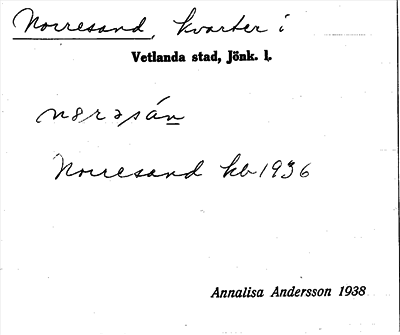 Norresand, kvarter i
Vetlanda stad, Jönk. l.
n8rəsán
Norresand kb 1936
Annalisa Andersson 1938